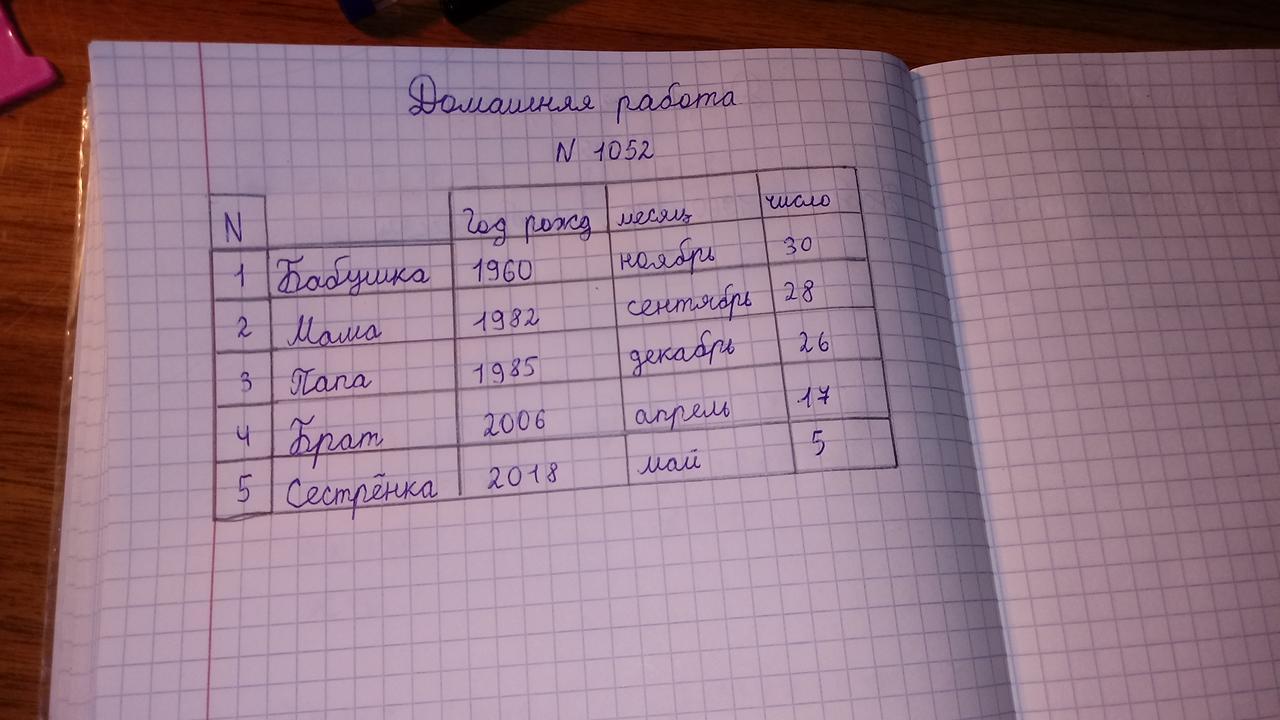 Домашняя работа
N 1052
N Год рожд месяц число
1 Бабушка 1960 ноябрь 30
2 Мама 1982 сентябрь 28
3 Папа 1985 декабрь 26
4 Брат 2006 апрель 17
5 Сестрёнка 2018 май 5